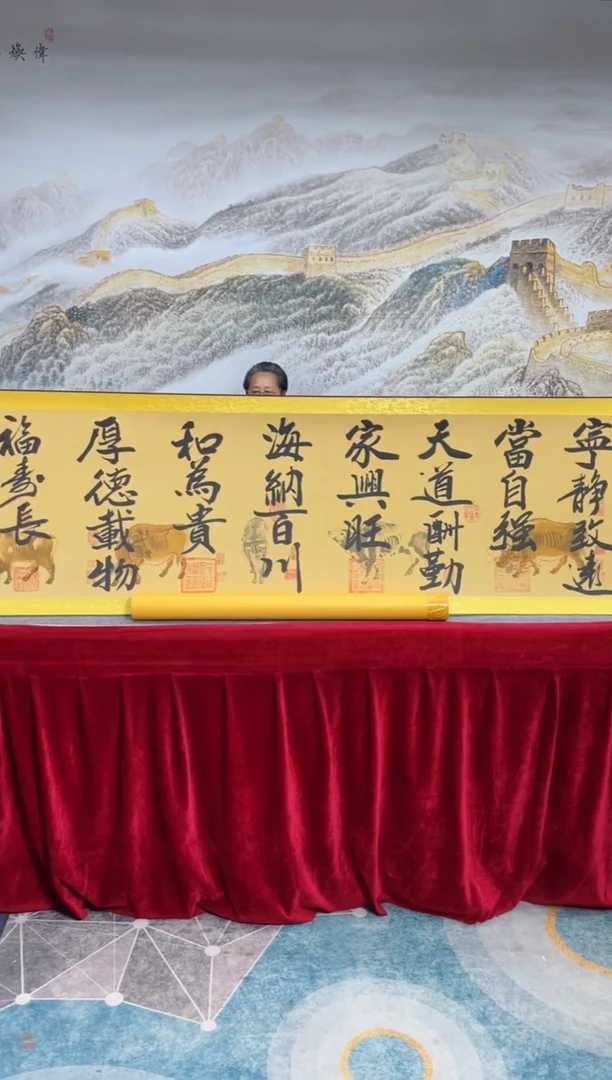 偉煥
寧静致遠
當自强
天道酬勤
家興旺
海納百川
和為貴
厚德載物
福壽長